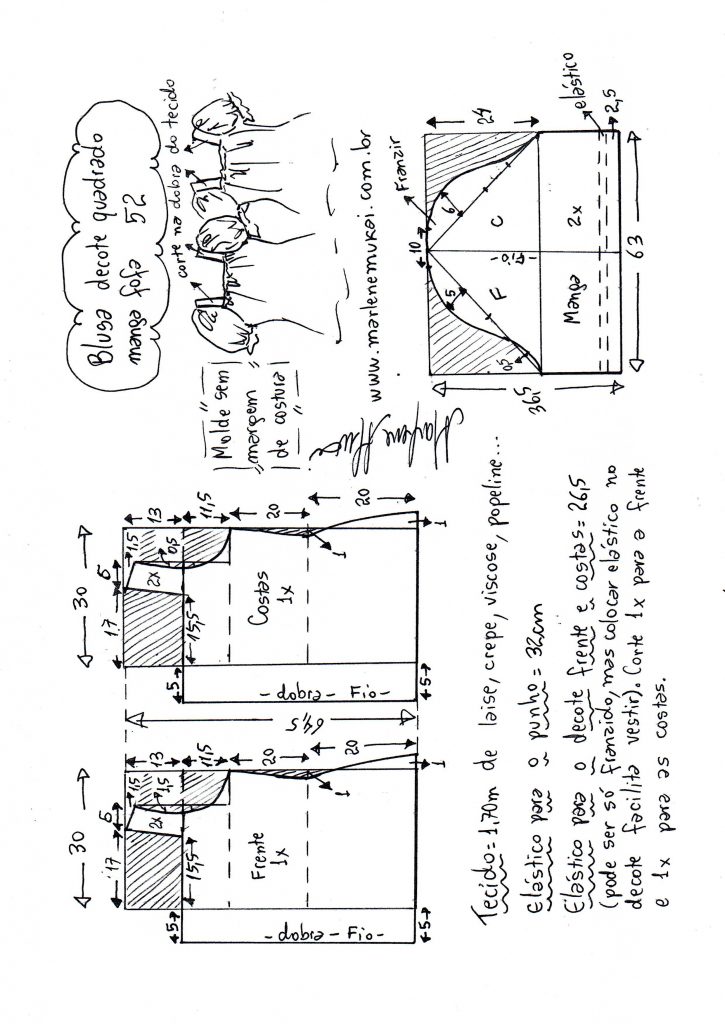 Blusa decote quadrado
manga fofa 52
corte na dobra do tecido
Molde sem
margem
de costura
www.marlenemukai.com.br
30
17
5
1,5
13
1,5
2x
11,5
15,5
20
20
5
5
Frente
1x
dobra - Fio
1
1
64,5
30
17
5
1,5
13
0,5
2x
11,5
15,5
20
20
5
5
Costas
1x
dobra - Fio
1
1
Franzir
10
24
6
5
0,5
F
C
Fio
Manga
2x
elástico
2,5
36,5
63
Tecido = 1,70m de laise, crepe, viscose, popeline...
Elástico para o punho = 32cm
Elástico para o decote frente e costas = 26,5
(pode ser só franzido, mas colocar elástico no
decote facilita vestir). Corte 1x para a frente
e 1x para as costas.